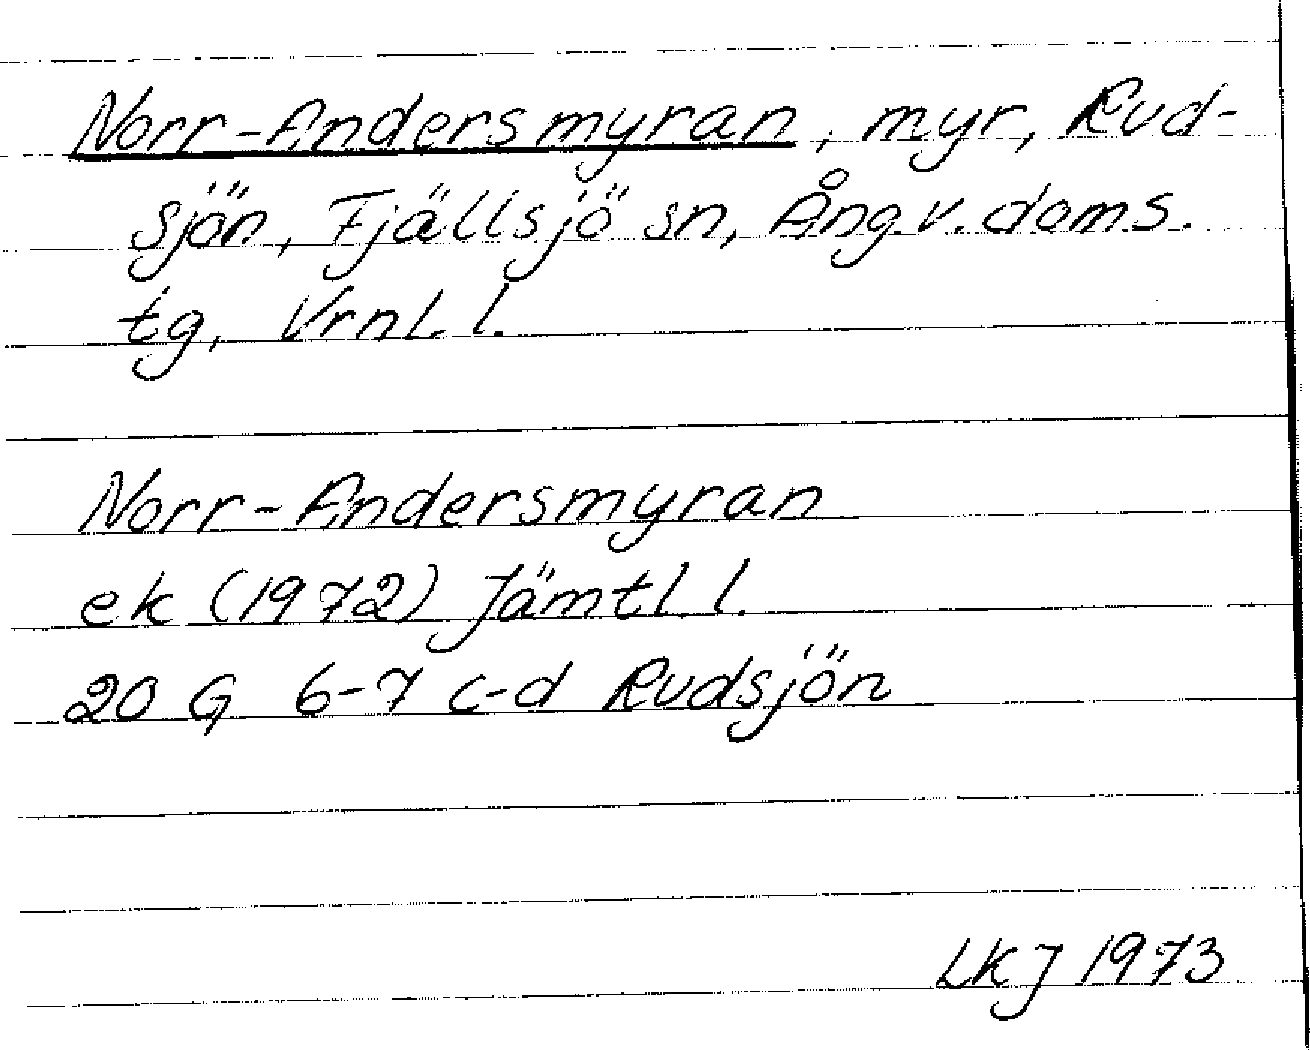 Norr-Andersmyran, myr, Rud-
sjön, Fjällsjö sn, Ång.v.doms.
tg, Vrnl. l.
Norr-Andersmyran
ek (1972) Jämtl. l.
20 G 6-7 c-d Rudsjön
LKJ 1973